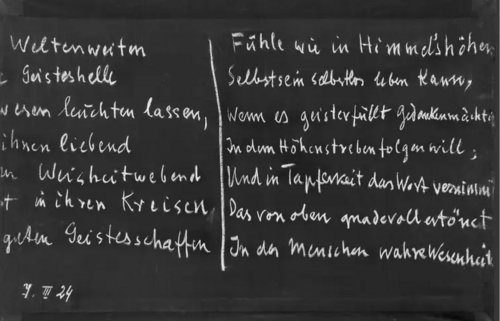 Weltenweiten
Geisteshelle
wesen leuchten lassen,
ihnen liebend
Weisheitwebend
in ihren Kreisen
guten Geistesschaffen
Fühle wie in Himmelshöhen
Selbstsein selbstlos leben kann,
Wenn es geisterfüllt Gedankenmächten
In dem Höhenstreben folgen will;
Und in Tapferkeit das Wort vernimmt
Das von oben gnadevoll ertönet
In der Menschen wahre Wesenheit
7. III 24